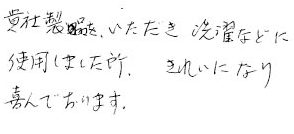 貴社製品を、いただき 洗濯などに
使用しました所、 きれいになり
喜んでおります。